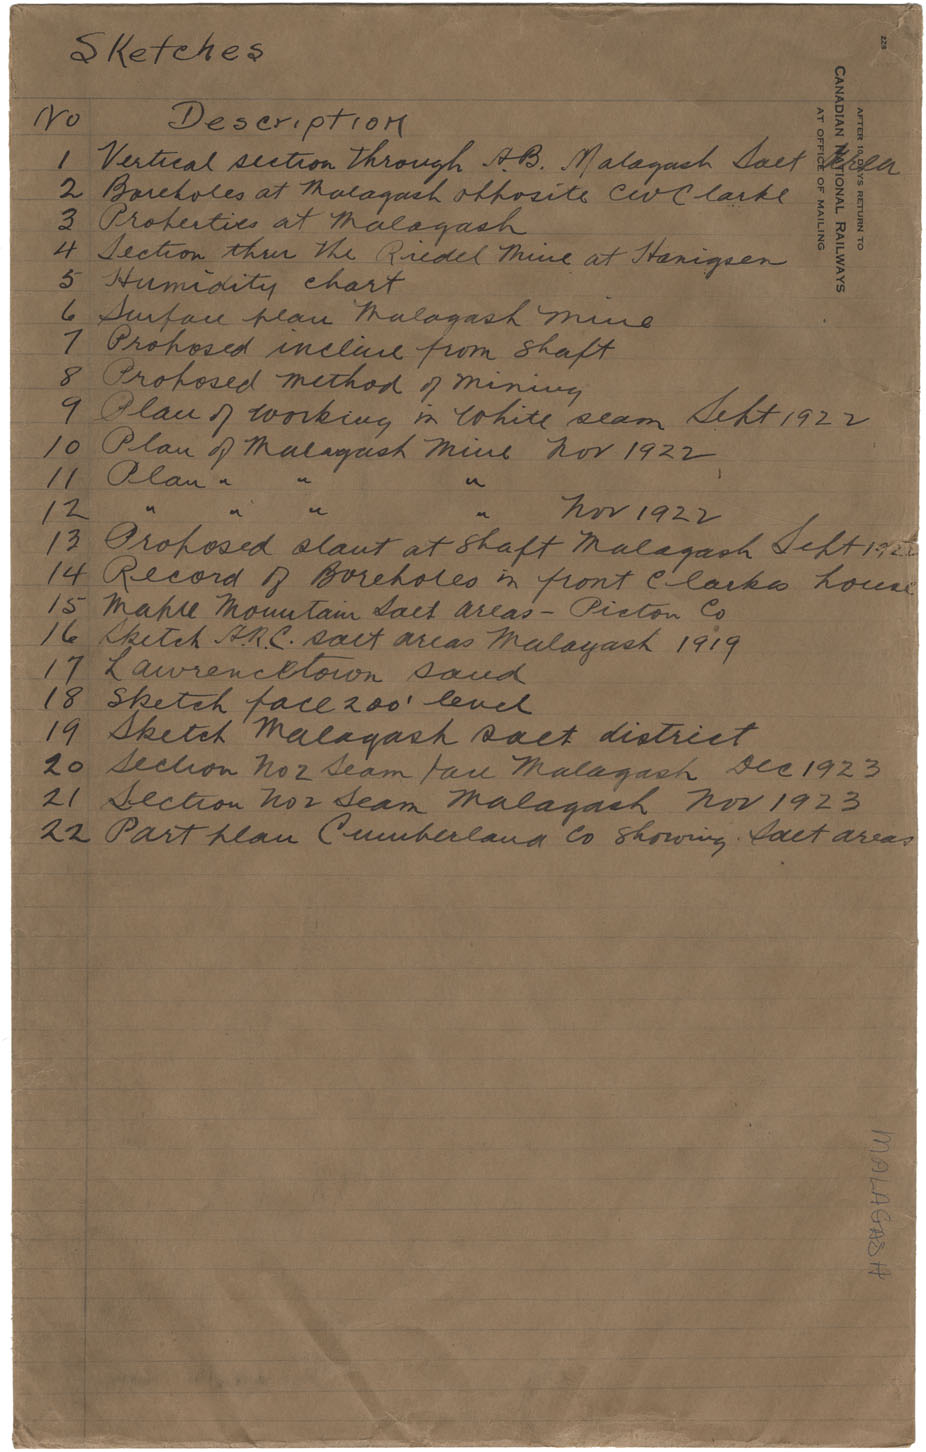 Sketches
No Description
1 Vertical section through A.B. Malagash Salt Area
2 Boreholes at Malagash opposite CW Clarke
3 Properties at Malagash
4 Section thru the Riedel Mine at Hanigsen
5 Humidity chart
6 Surface plan Malagash mine
7 Proposed incline from shaft
8 Proposed method of mining
9 Plan of working in White seam Sept 1922
10 Plan of Malagash Mine Nov 1922
11 Plan " " "
12 " " " " Nov 1922
13 Proposed slant at shaft Malagash Sept 1922
14 Record of Boreholes in front Clarkes house
15 Maple Mountain Salt areas - Pictou Co
16 Sketch A.R.C. salt areas Malagash 1919
17 Lawrencetown sand
18 Sketch face 200' level
19 Sketch Malagash salt district
20 Section No 2 Seam face Malagash Dec 1923
21 Section No 2 Seam Malagash Nov 1923
22 Part plan Cumberland Co showing Salt areas
228
AFTER 10 DAYS RETURN TO
CANADIAN NATIONAL RAILWAYS
AT OFFICE OF MAILING
MALAGASH